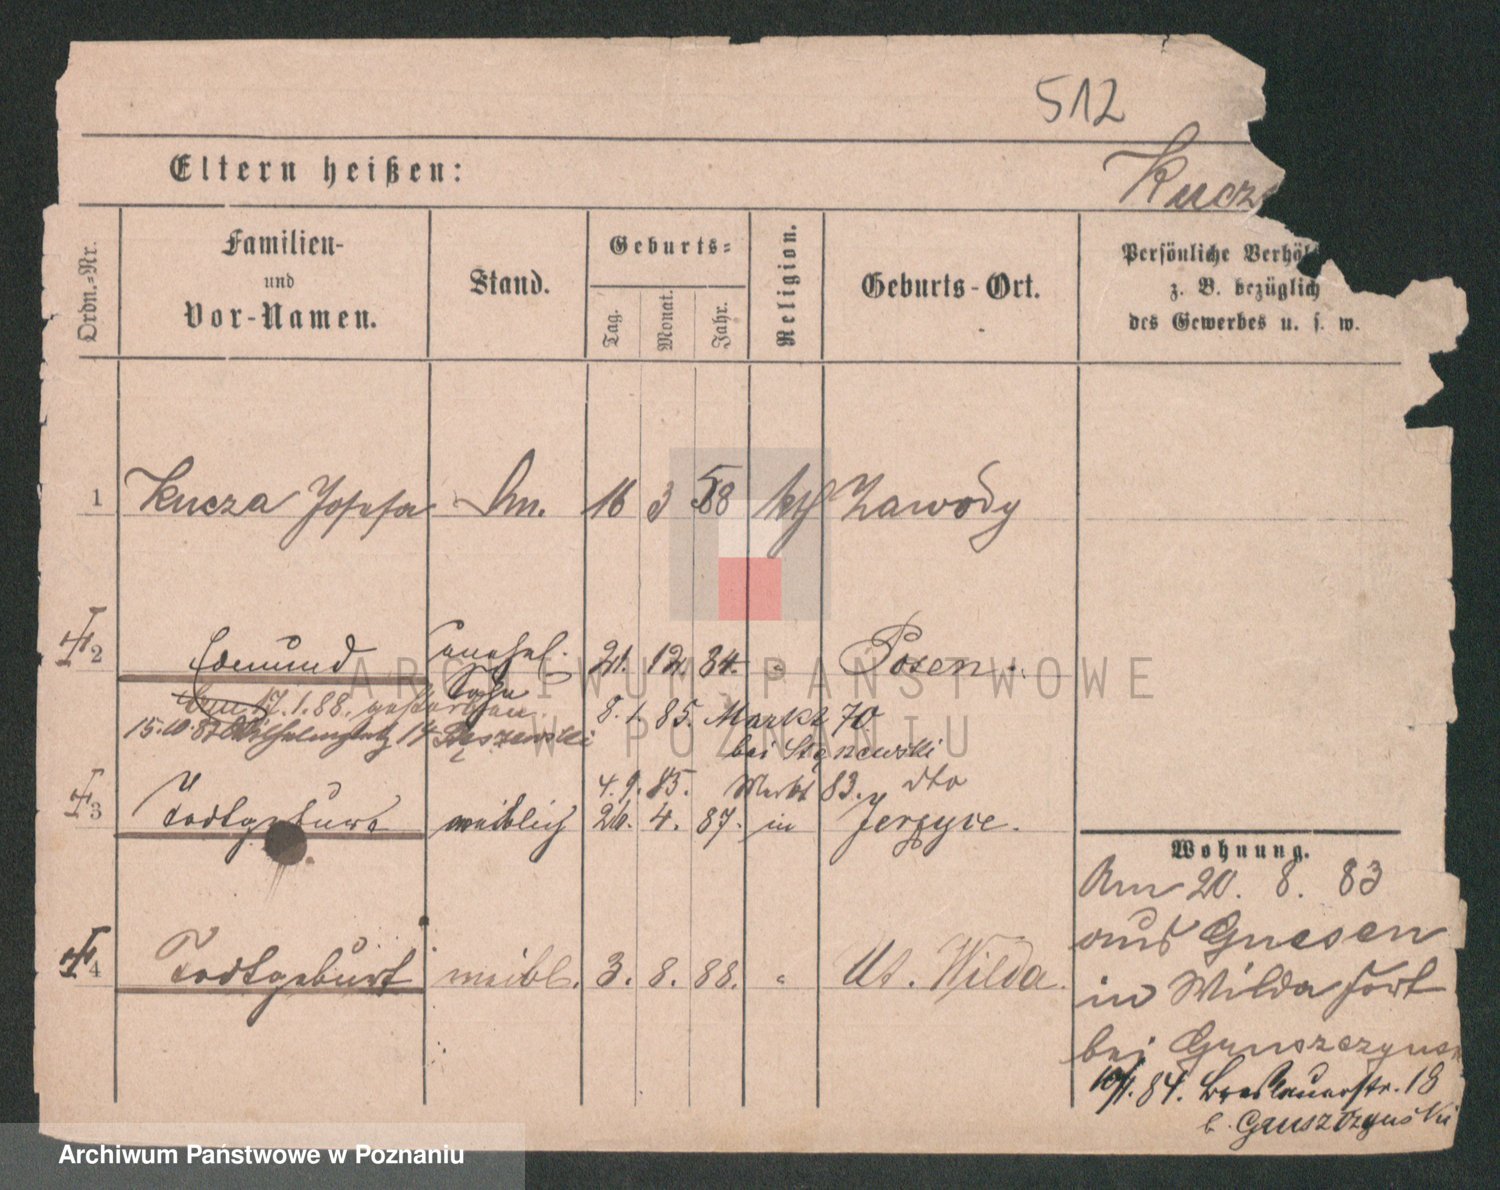 512
Eltern heißen:
Kucz
Ordn.-Nr.
Familien-
und
Vor-Namen.
Stand.
Geburts-
Tag.
Monat.
Jahr.
Religion.
Geburts-Ort.
Persönliche Verhäl
z. B. bezüglich
des Gewerbes u. s. w.
1 Kucza Josefa 16 3 58 kth Zawody
2 Edmund unehel. 21. 12. 84. " Posen.
Sohn
17.1.88. gestorben
8. 1. 85. Markt 70
15.10.87 Wilhelmplatz 14
bei
4. 9. 85. Markt 83. dto
3 Todtgeburt weiblich 26. 4. 87. in Jerzyce.
4 Todtgeburt weibl. 3. 8. 88. " Ut. Wilda.
Wohnung.
Am 20. 8. 83
aus Gnesen
in Wilda fort
bei Gruszczynsk
84. Breslauerstr. 18
b. Gruszczynski
ARCHIWUM PAŃSTWOWE
W POZNANIU
Archiwum Państwowe w Poznaniu